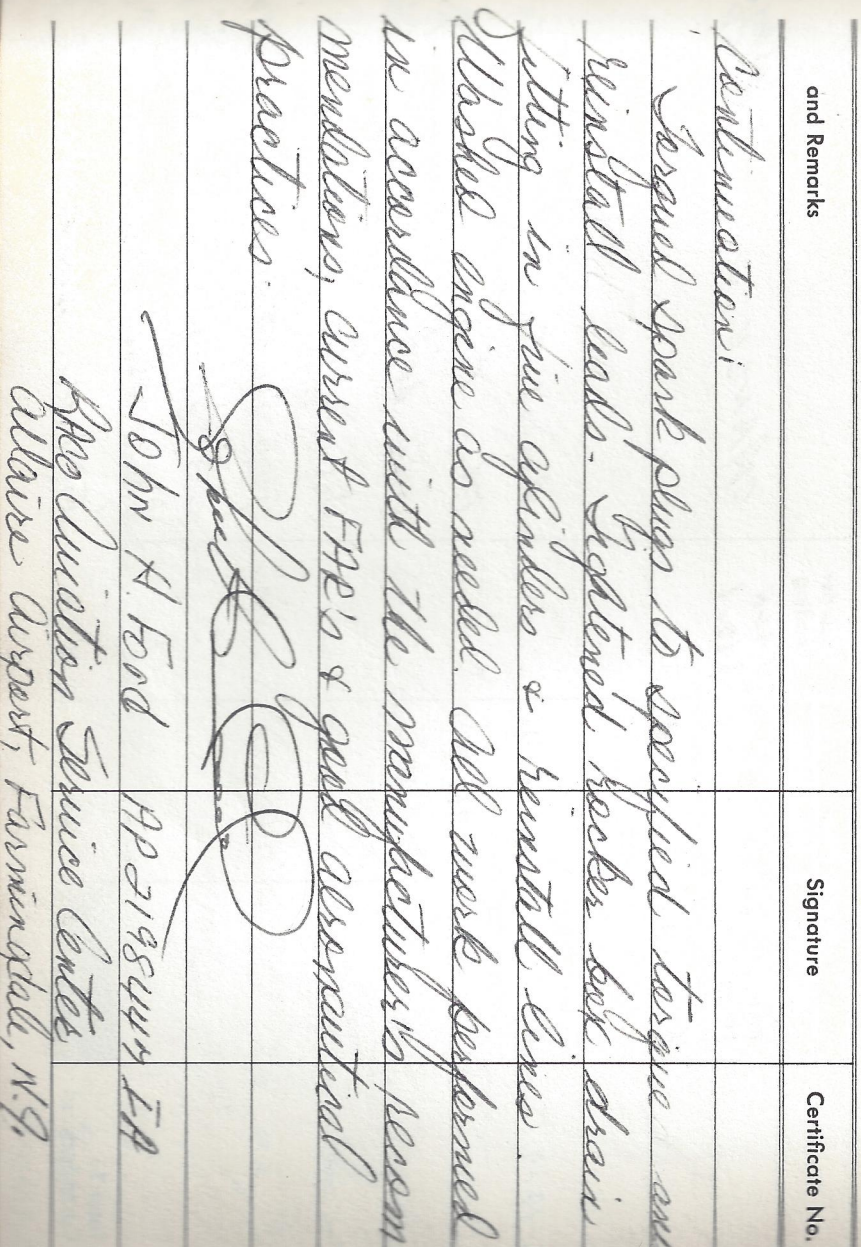 and Remarks Signature Certificate No.
Continuation:
Torqued spark plugs to specified torque an
reinstall leads. Tightened rocker box drain
itting in five cylinders & reinstall lines.
Washed engine as needed. All work performed
in accordance with the manufacturer's recom
mendations, current FAR's & good aeronautical
practices.
John H. Ford AP 2198444 IA
Aviation Service Center
Allaire Airport, Farmingdale, N.J.